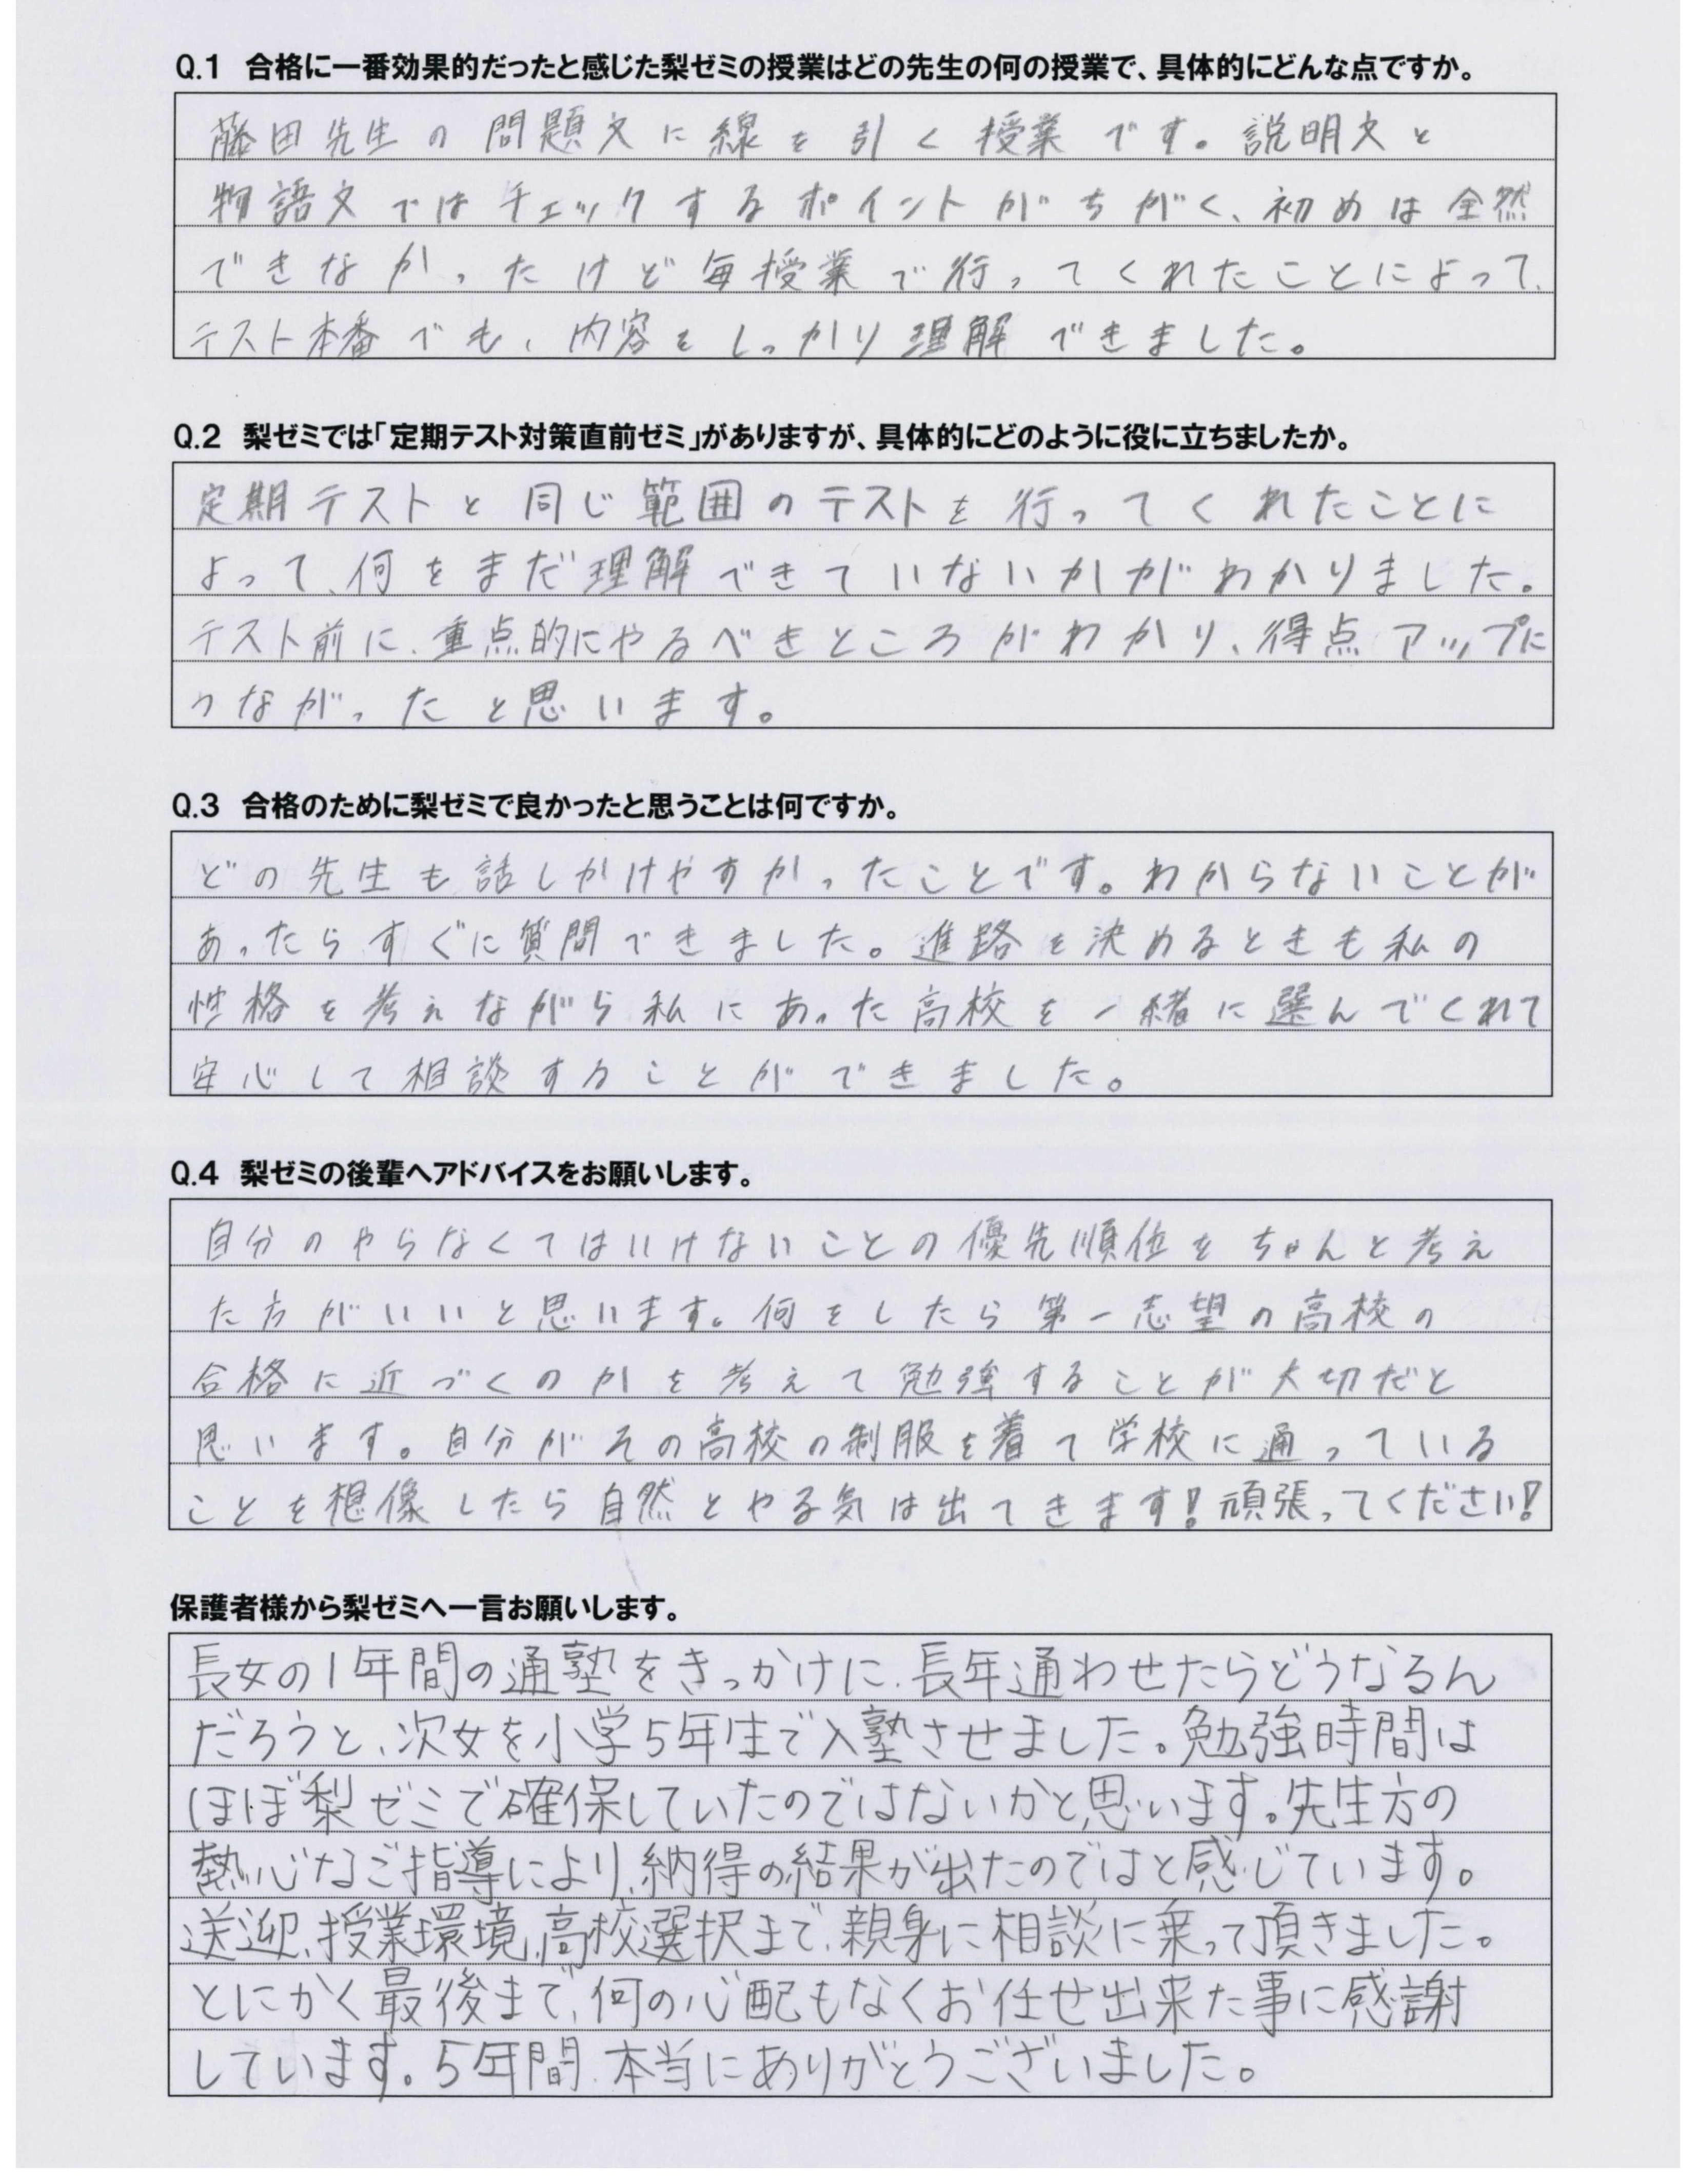 Q.1 合格に一番効果的だったと感じた梨ゼミの授業はどの先生の何の授業で、具体的にどんな点ですか。
藤田先生の問題文に線を引く授業です。説明文と
物語文ではチェックするポイントがちがく、初めは全然
できなかったけど毎授業で行ってくれたことによって、
テスト本番でも、内容をしっかり理解できました。
Q.2 梨ゼミでは「定期テスト対策直前ゼミ」がありますが、具体的にどのように役に立ちましたか。
定期テストと同じ範囲のテストを行ってくれたことに
よって、何をまだ理解できていないかがわかりました。
テスト前に、重点的にやるべきところがわかり、得点アップに
つながったと思います。
Q.3 合格のために梨ゼミで良かったと思うことは何ですか。
どの先生も話しかけやすかったことです。わからないことが
あったらすぐに質問できました。進路を決めるときも私の
性格を考えながら私にあった高校を一緒に選んでくれて
安心して相談することができました。
Q.4 梨ゼミの後輩へアドバイスをお願いします。
自分のやらなくてはいけないことの優先順位をちゃんと考え
た方がいいと思います。何をしたら第一志望の高校の
合格に近づくのかを考えて勉強することが大切だと
思います。自分がその高校の制服を着て学校に通っている
ことを想像したら自然とやる気は出てきます!頑張ってください!
保護者様から梨ゼミへ一言お願いします。
長女の1年間の通塾をきっかけに、長年通わせたらどうなるん
だろうと、次女を小学5年生で入塾させました。勉強時間は
ほぼ梨ゼミで確保していたのではないかと思います。先生方の
熱心なご指導により、納得の結果が出たのではと感じています。
送迎、授業環境、高校選択まで、親身に相談に乗って頂きました。
とにかく最後まで、何の心配もなくお任せ出来た事に感謝
しています。5年間、本当にありがとうございました。